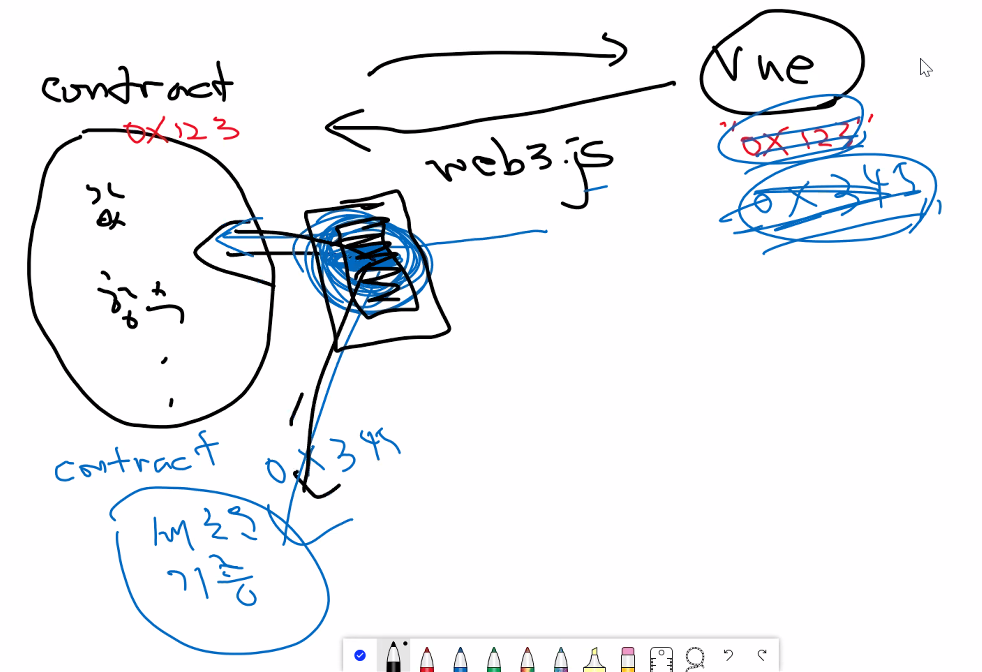 contract
0x123
Vue
"0x123"
0x345
web3.js
contract
0x345
새로운
기종